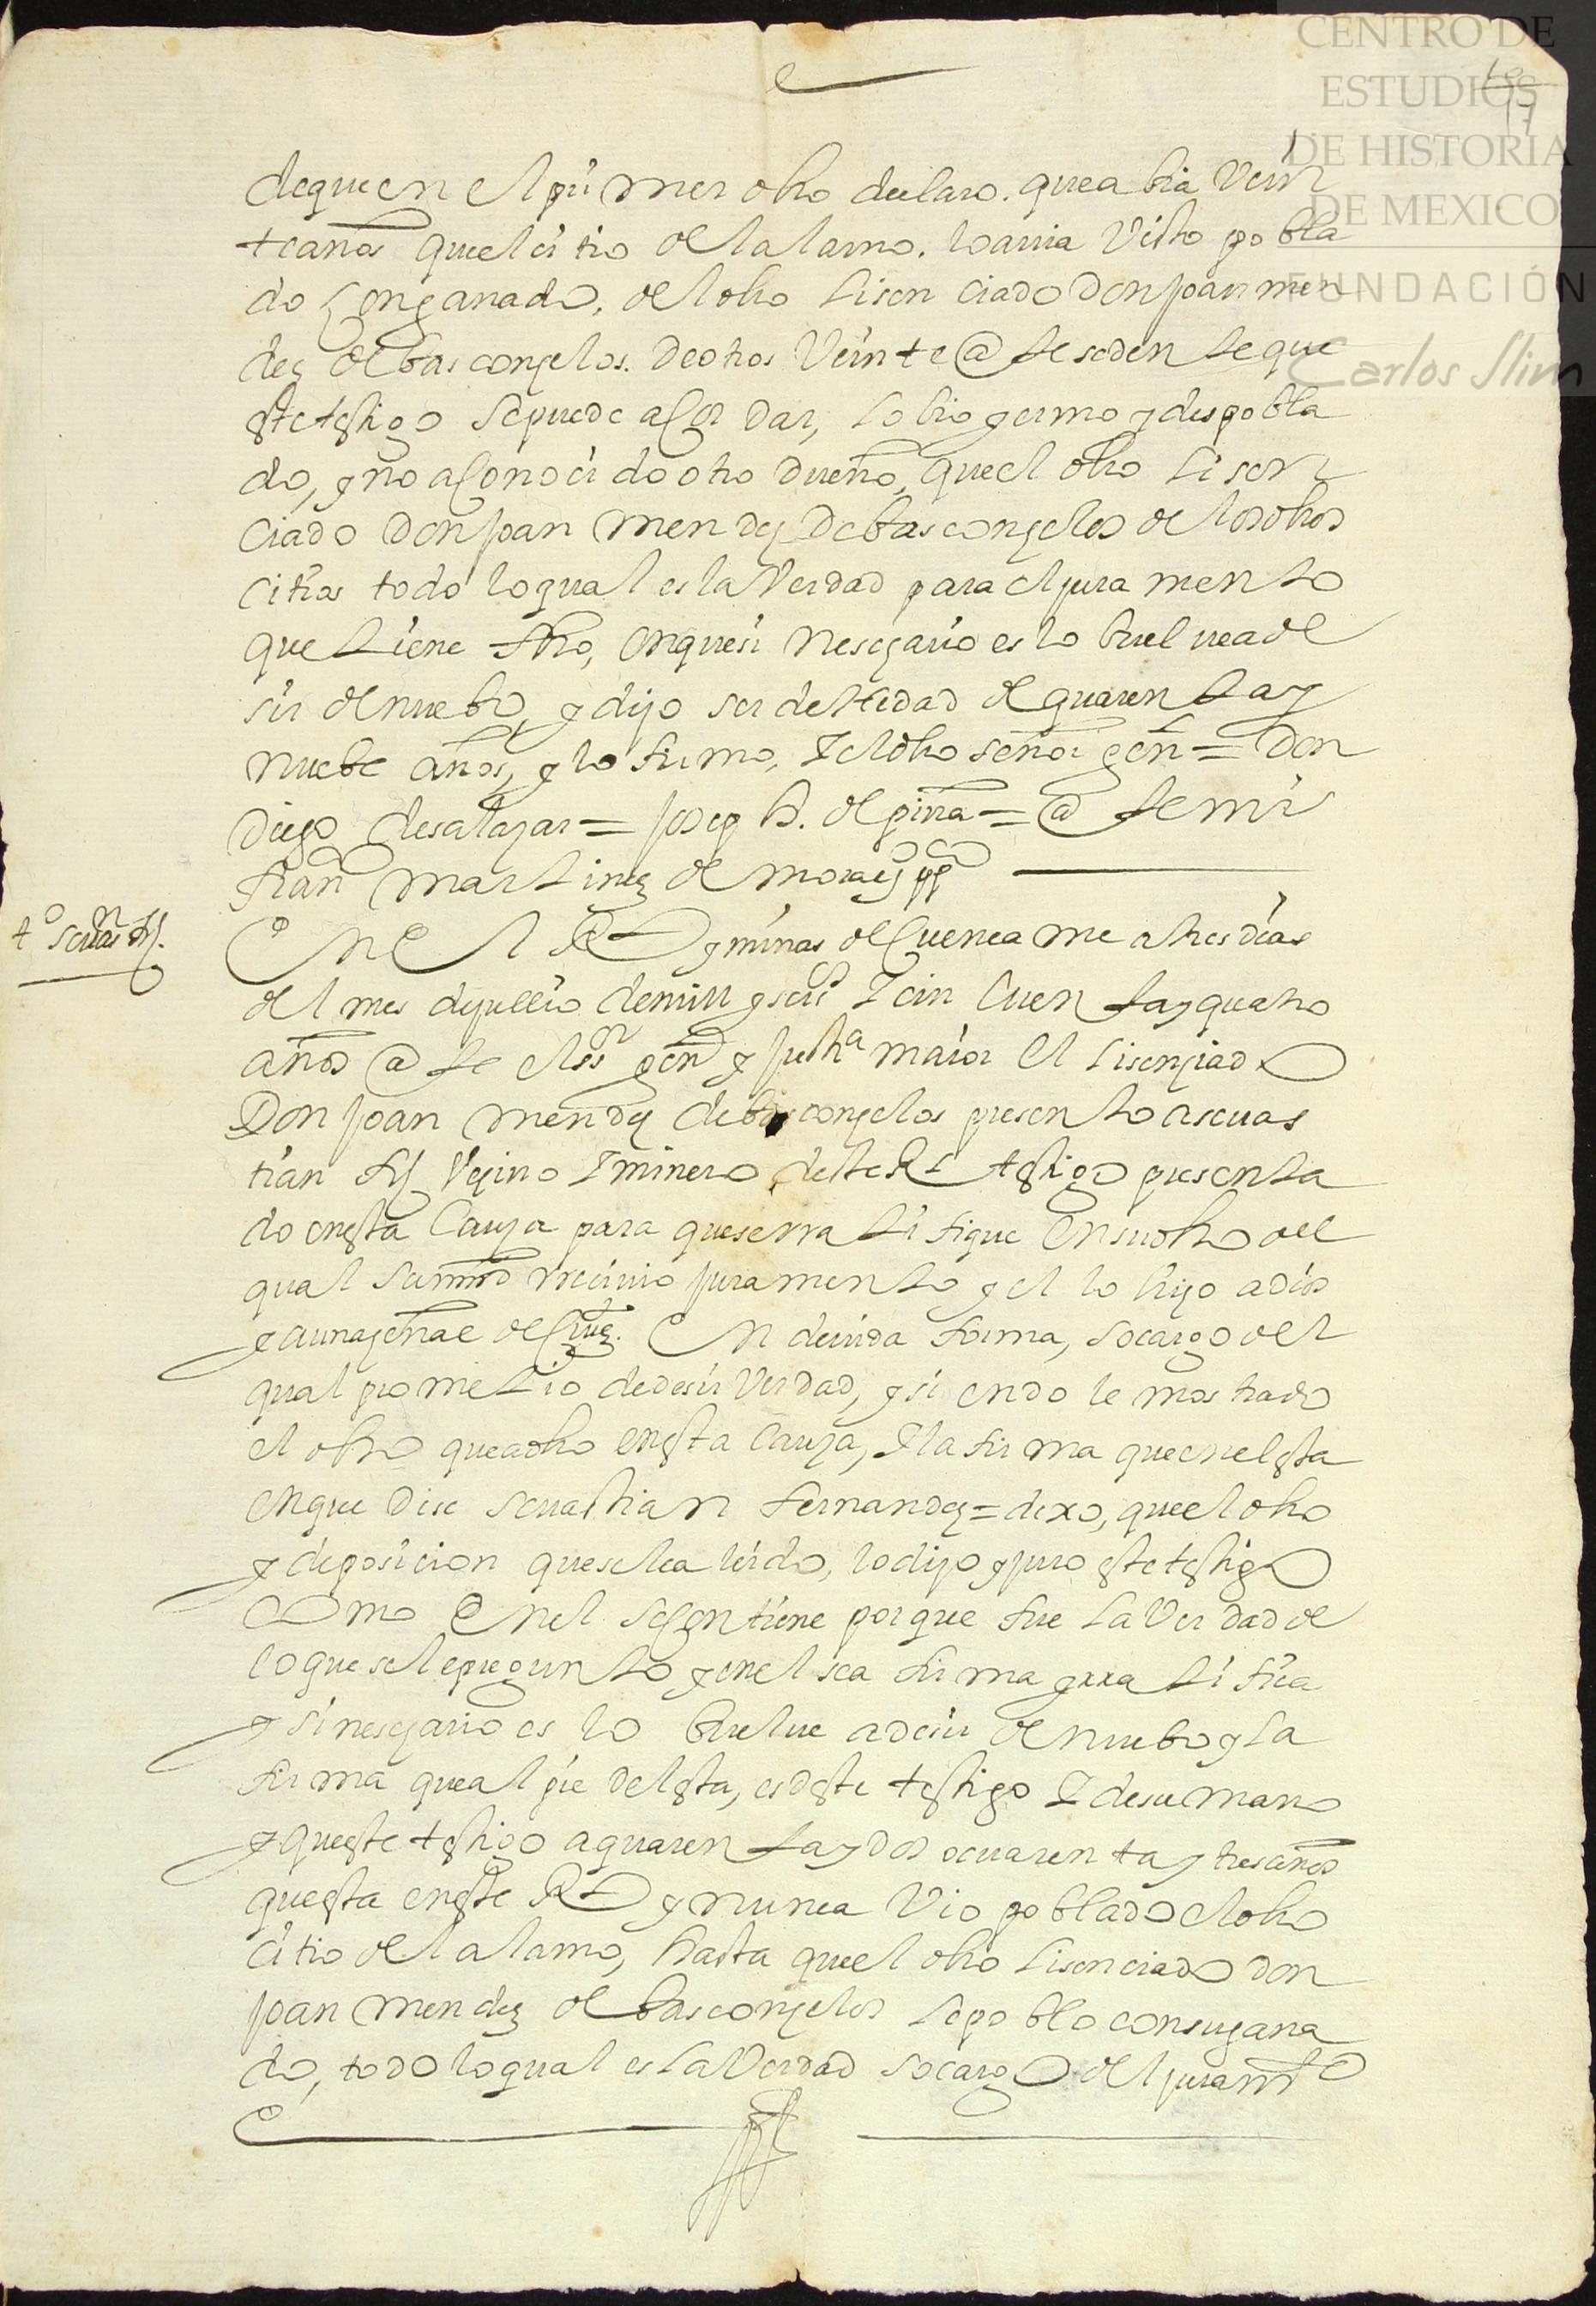 CENTRO DE
ESTUDIOS
DE HISTORIA
DE MEXICO
FUNDACIÓN
Carlos Slim
17
de que en el primer dho declaro. que abia Vein
te años que el citio del alamo. lo auia Visto pobla
do con ganado, del dho Lisenciado Don Joan men
dez de basconzelos. De dhos Veinte @
este testigo se puede acordar, lo bio yermo y despobla
do, y no a conocido otro dueño, que el dho Lisen
ciado Don Joan Mendez De basconzelos de los dhos
citios todo lo qual es la Verdad para el jura mento
que tiene fho, en que si nesezario es lo buelue a de
sir de nuebo, y dijo ser de hedad de quarenta y
nuebe años, y lo firmo, I el dho señor gen = Don
Diego de salazar = Josep B. de piña = @ te mi
fran Martinez de moraez pp
tº Seuas frz.
En El Rl y minas de Cuencame a tres días
del mes de jullio de mill y seis I cin cuenta y quatro
años @ te el sr gen y justª maior El Lisenziado
Don Joan Mendez de basconzelos presento a seuas
tian frz Vezino I minero deste Rl testigo presenta
do en esta Cauza para que se rra ti fique En su dho del
qual su md rreciuio juramento y el lo hizo a dios
y a una señal de Cruz. En deuida forma, so cargo del
qual prometio de desir Verdad, y si endo le mostrado
el dho que a dho en esta Cauza, I la firma que en el esta
en que Dise Seuastian fernandez = dixo, que el dho
y deposicion que se le a leido, lo dijo y juro este testigo
Como En el se contiene porque fue La Verdad de
lo que se le pregunto y en el se a firma y rra ti fica
y si nesezario es lo buelue a desir de nuebo y La
firma que al pie del esta, es deste testigo I de su mano
y que este testigo a quarenta y dos o cuarenta y tres años
que esta en este Rl y nunca Vio poblado el dho
citio del alamo, hasta que el dho Lisenciado don
Joan Mendez de basconzelos le poblo con su gana
do, todo lo qual es La Verdad so cargo del juramto